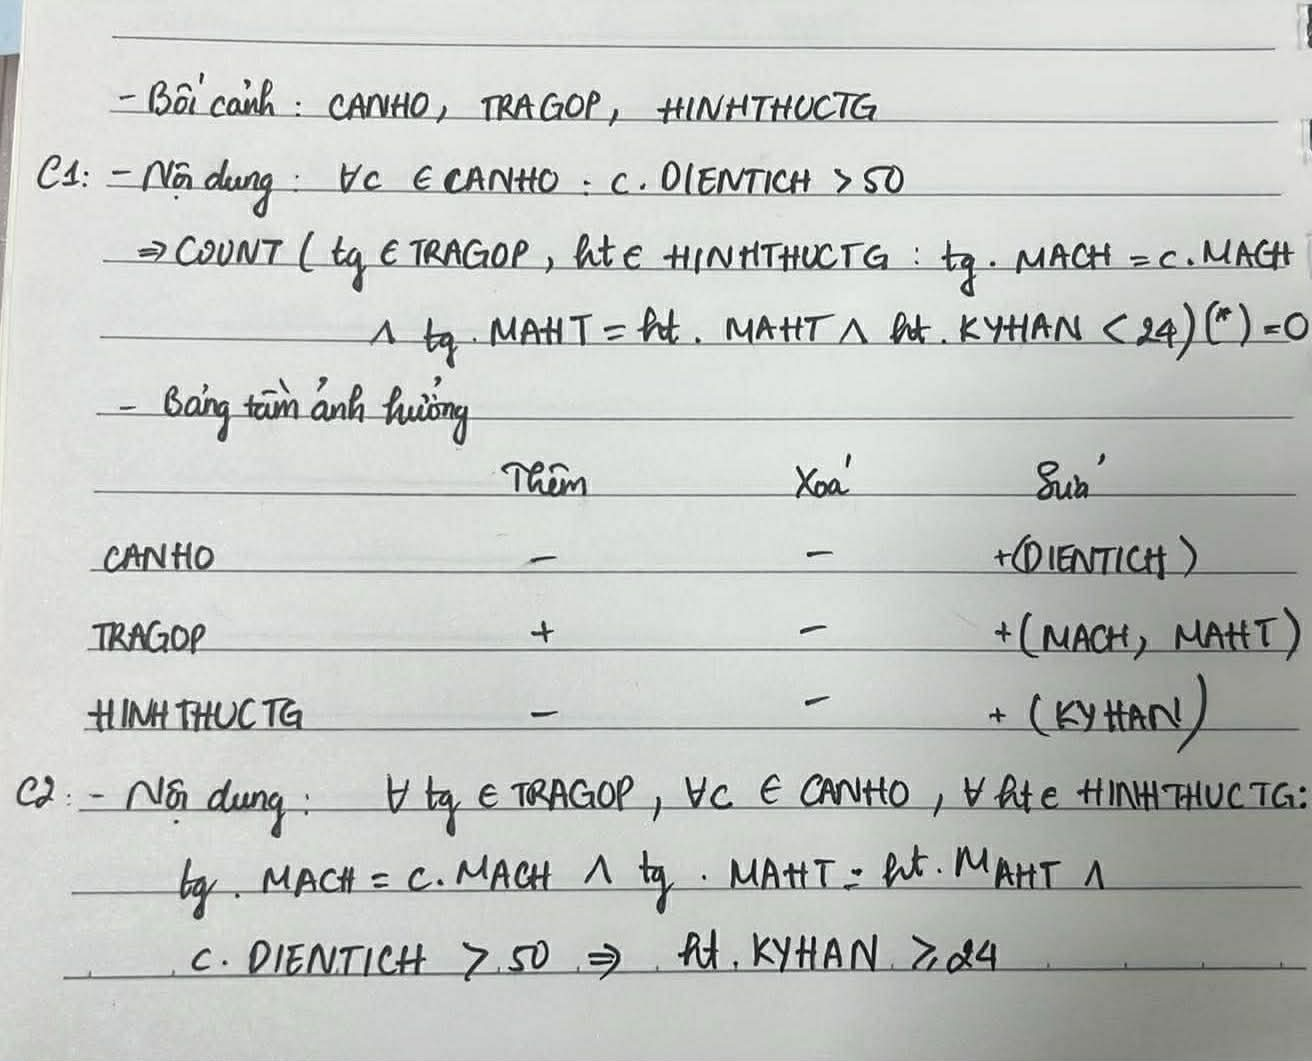 - Bối cảnh : CANHO, TRAGOP, HINHTHUCTG
C1: - Nội dung : ∀c ∈ CANHO : c. DIENTICH > 50
⇒ COUNT ( tg ∈ TRAGOP, ht ∈ HINHTHUCTG : tg. MACH = c. MACH
∧ tg. MAHT = ht. MAHT ∧ ht. KYHAN < 24)(*) = 0
- Bảng tầm ảnh hưởng
Thêm Xoá Sửa
CANHO - - +(DIENTICH)
TRAGOP + - +(MACH, MAHT)
HINHTHUCTG - - + (KYHAN)
C2: - Nội dung : ∀ tg ∈ TRAGOP, ∀c ∈ CANHO, ∀ ht ∈ HINHTHUCTG:
tg. MACH = c. MACH ∧ tg. MAHT = ht. MAHT ∧
c. DIENTICH > 50 ⇒ ht. KYHAN ≥ 24